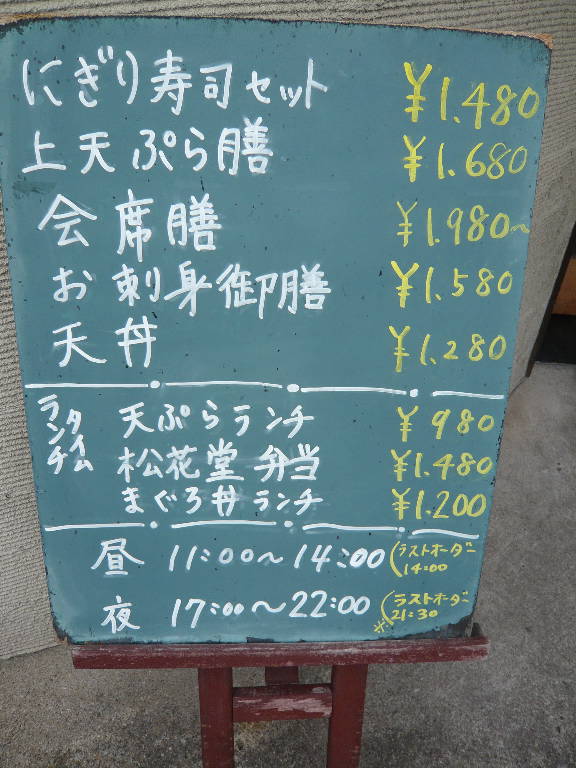 にぎり寿司セット ¥1.480
上天ぷら膳 ¥1.680
会席膳 ¥1.980~
お刺身御膳 ¥1.580
天丼 ¥1.280
ランチタイム
天ぷらランチ ¥980
松花堂弁当 ¥1.480
まぐろ丼ランチ ¥1.200
昼 11:00~14:00 (ラストオーダー 14:00
夜 17:00~22:00 (ラストオーダー 21:30